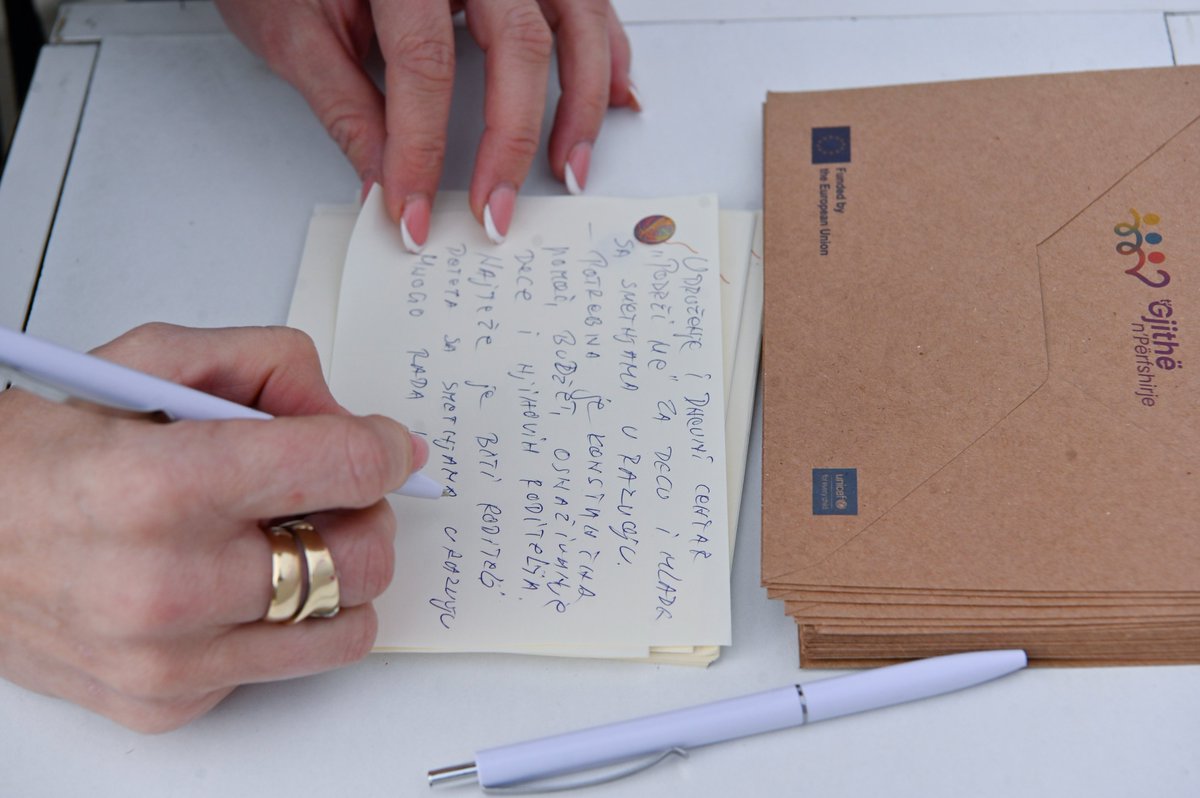 UDRUŽENJE I DNEVNI CENTAR
"PODRŽI ME" ZA DECU I MLADE
SA SMETNJAMA U RAZVOJU.
- POTREBNA JE KONSTANTNA
POMOĆ, BUDŽET, OSNAŽIVANJE
DECE I NJIHOVIH RODITELJA.
NAJTEŽE JE BITI RODITELJ
DETETA SA SMETNJAMA U RAZVOJU
MNOGO RADA
Funded by
the European Union
unicef
for every child
Gjithë
n'Përfshirje